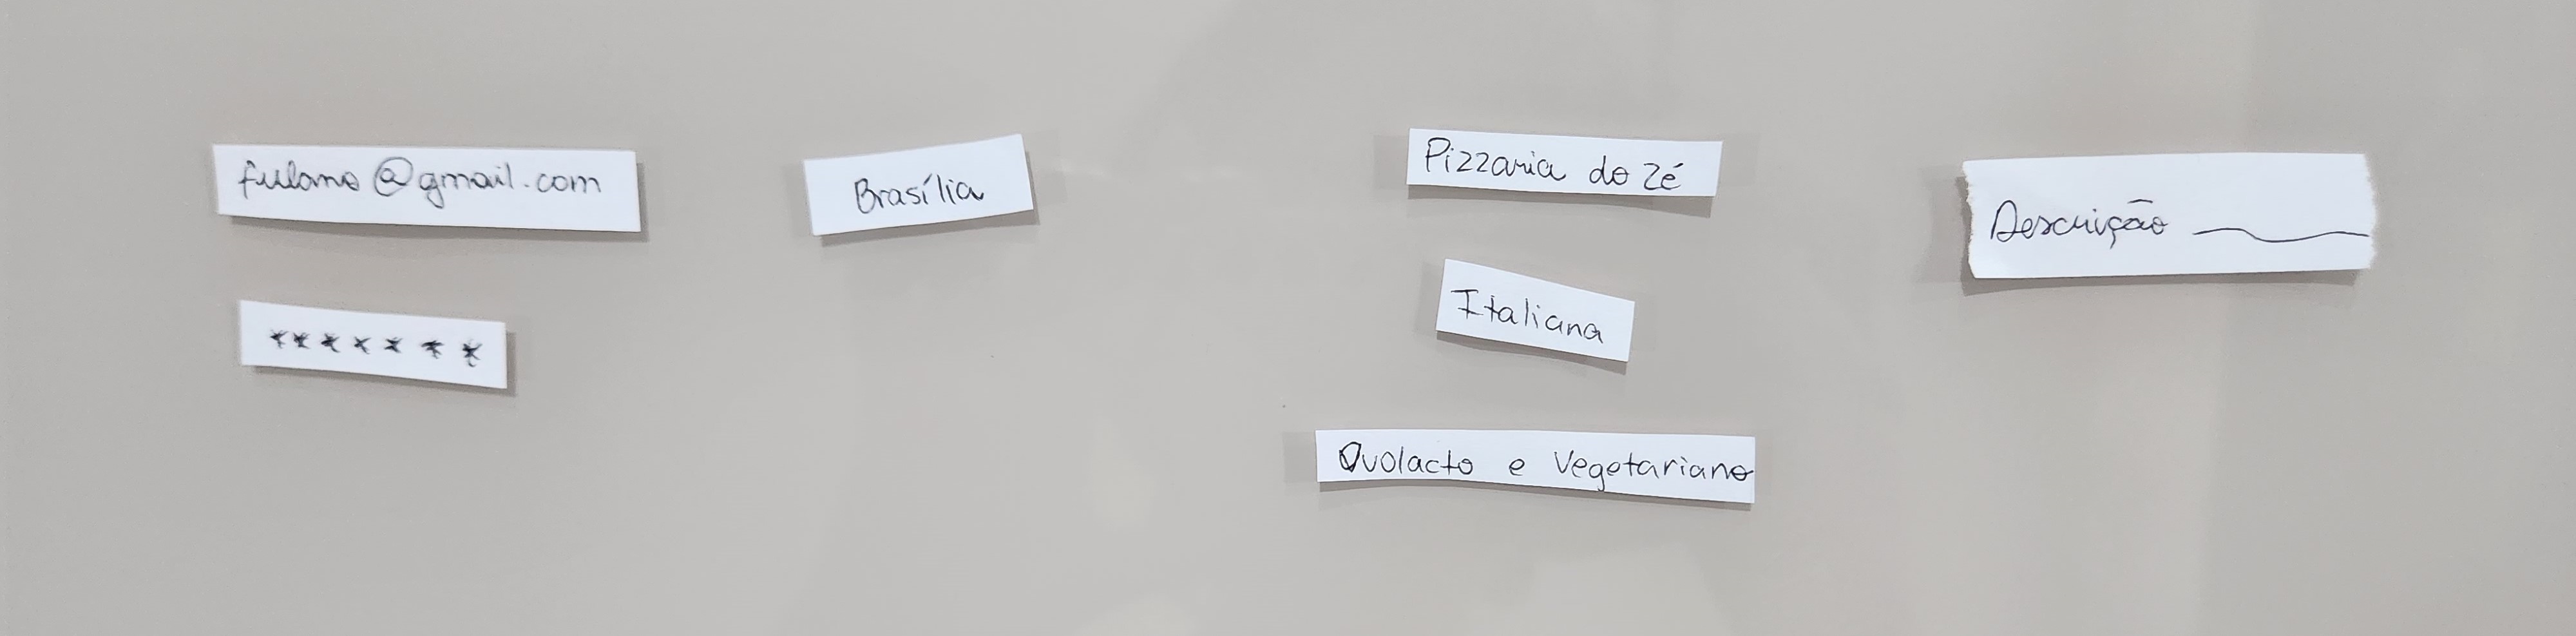 fulano@gmail.com
*******
Brasília
Pizzaria do Zé
Italiana
Ovolacto e Vegetariano
Descrição